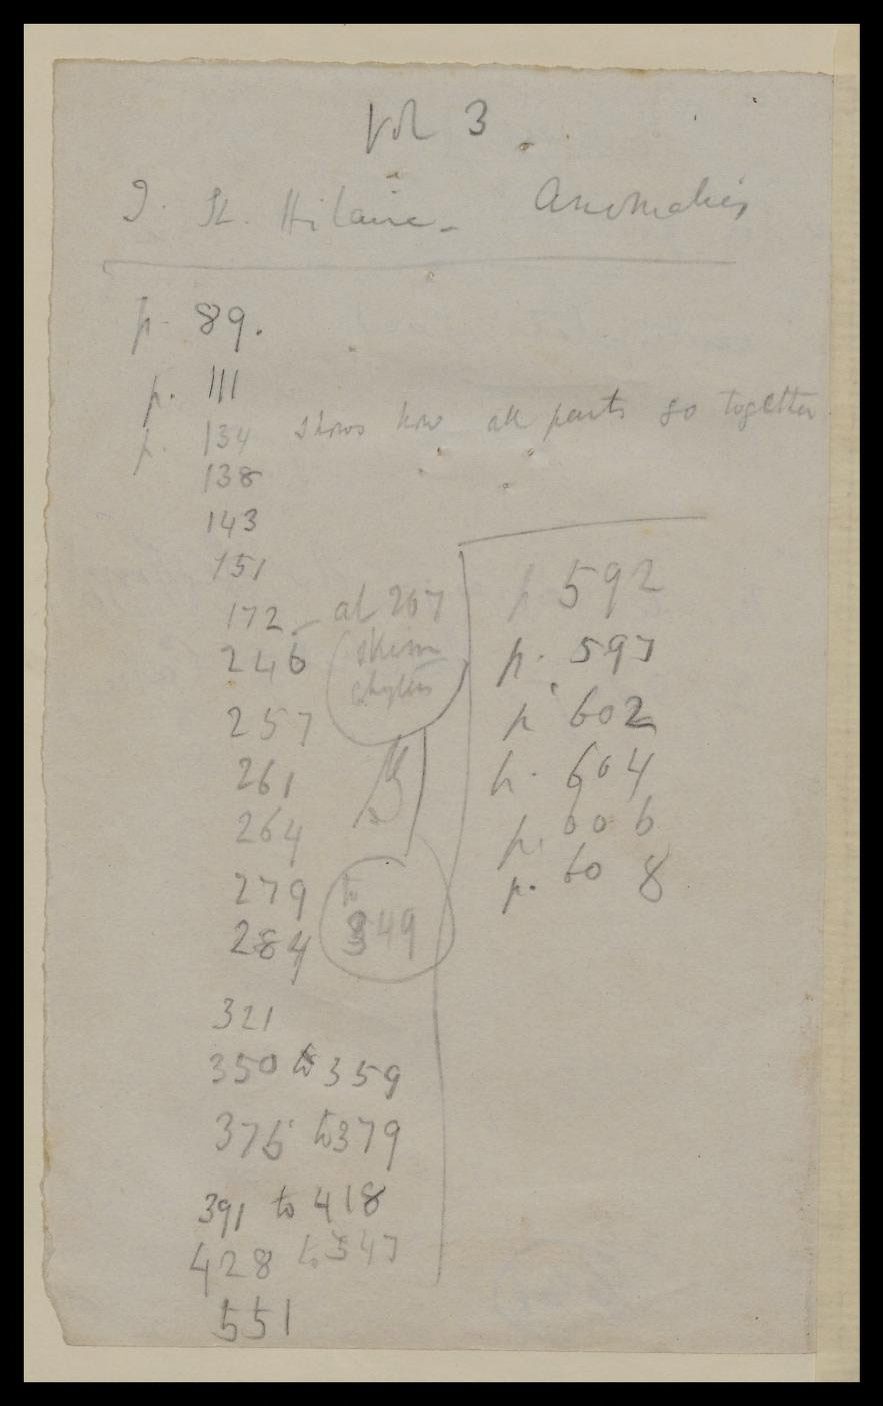 Vol 3
I. St. Hilaire - Anomalies
p. 89.
p. 111
p. 134 shows how all parts go together
138
143
151
172 - at 267
246 skim
257
261
264
279 to
284 349
321
350 to 359
375 to 379
391 to 418
428 to 547
551
p 592
p. 597
p 602
p. 604
p. 606
p. 608